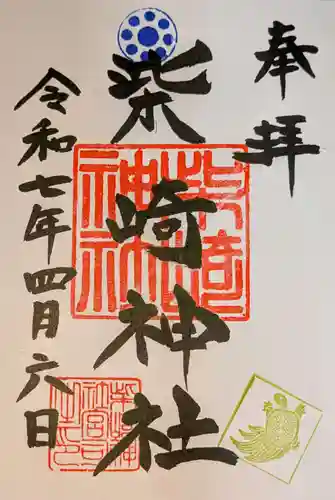 奉拝
柴崎神社
令和七年四月六日
柴崎神社